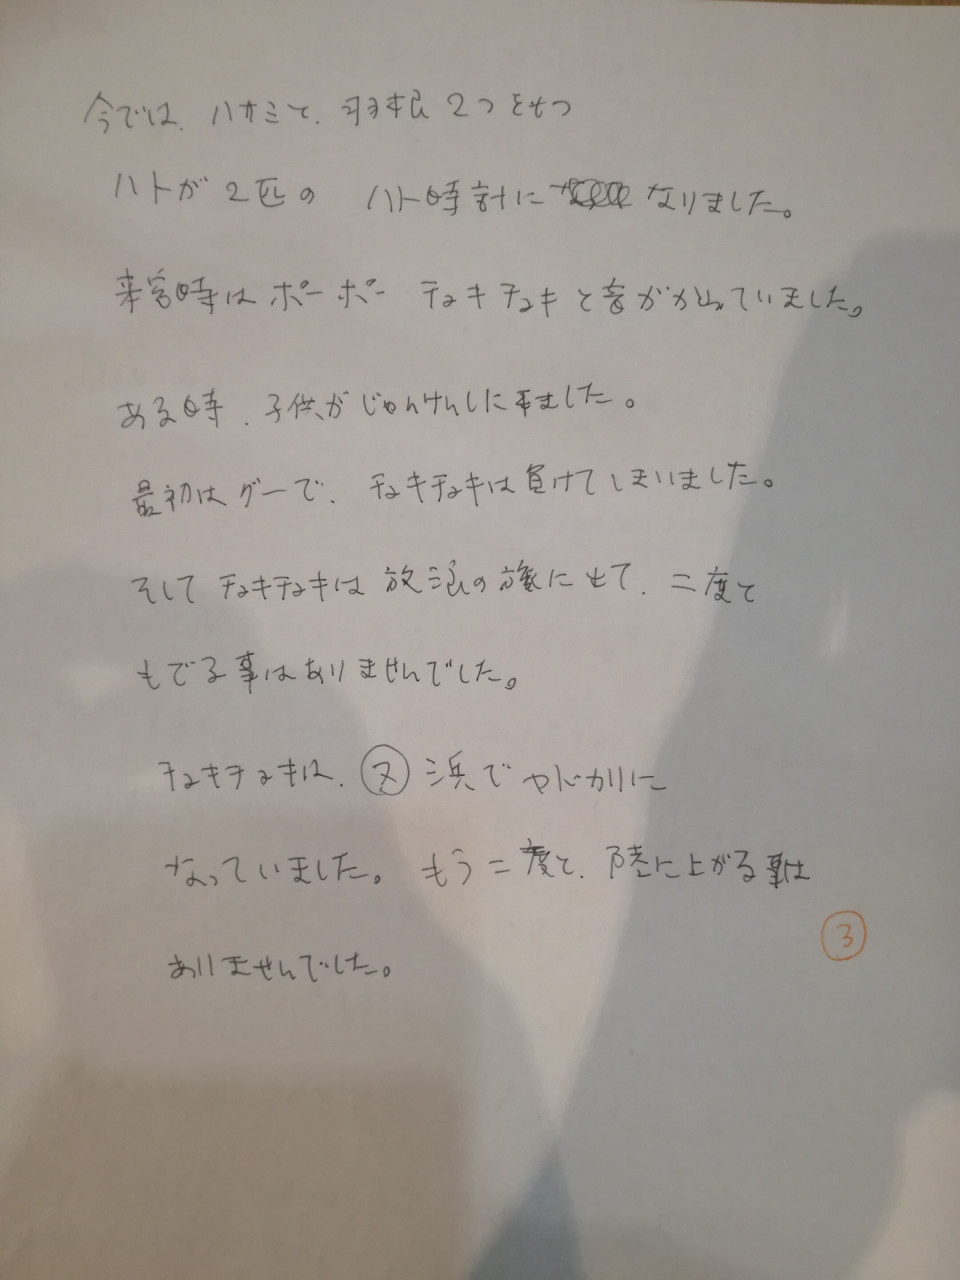 今では、ハサミと、羽根2つをもつ
ハトが2匹の ハト時計に なりました。
来客時はポーポー チョキチョキと音がなっていました。
ある時、子供がじゃんけんしに来ました。
最初はグーで、チョキチョキは負けてしまいました。
そしてチョキチョキは放浪の旅に出て、二度と
もどる事はありませんでした。
チョキチョキは、又 浜でヤドカリに
なっていました。もう二度と、陸に上がる事は
ありませんでした。
3